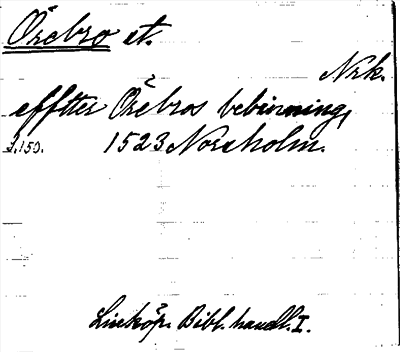 Örebro st.
Nrk.
effter Örebros bebinning,
S. 150. 1523 Norsholm.
Linköp. Bibl. handl. I.